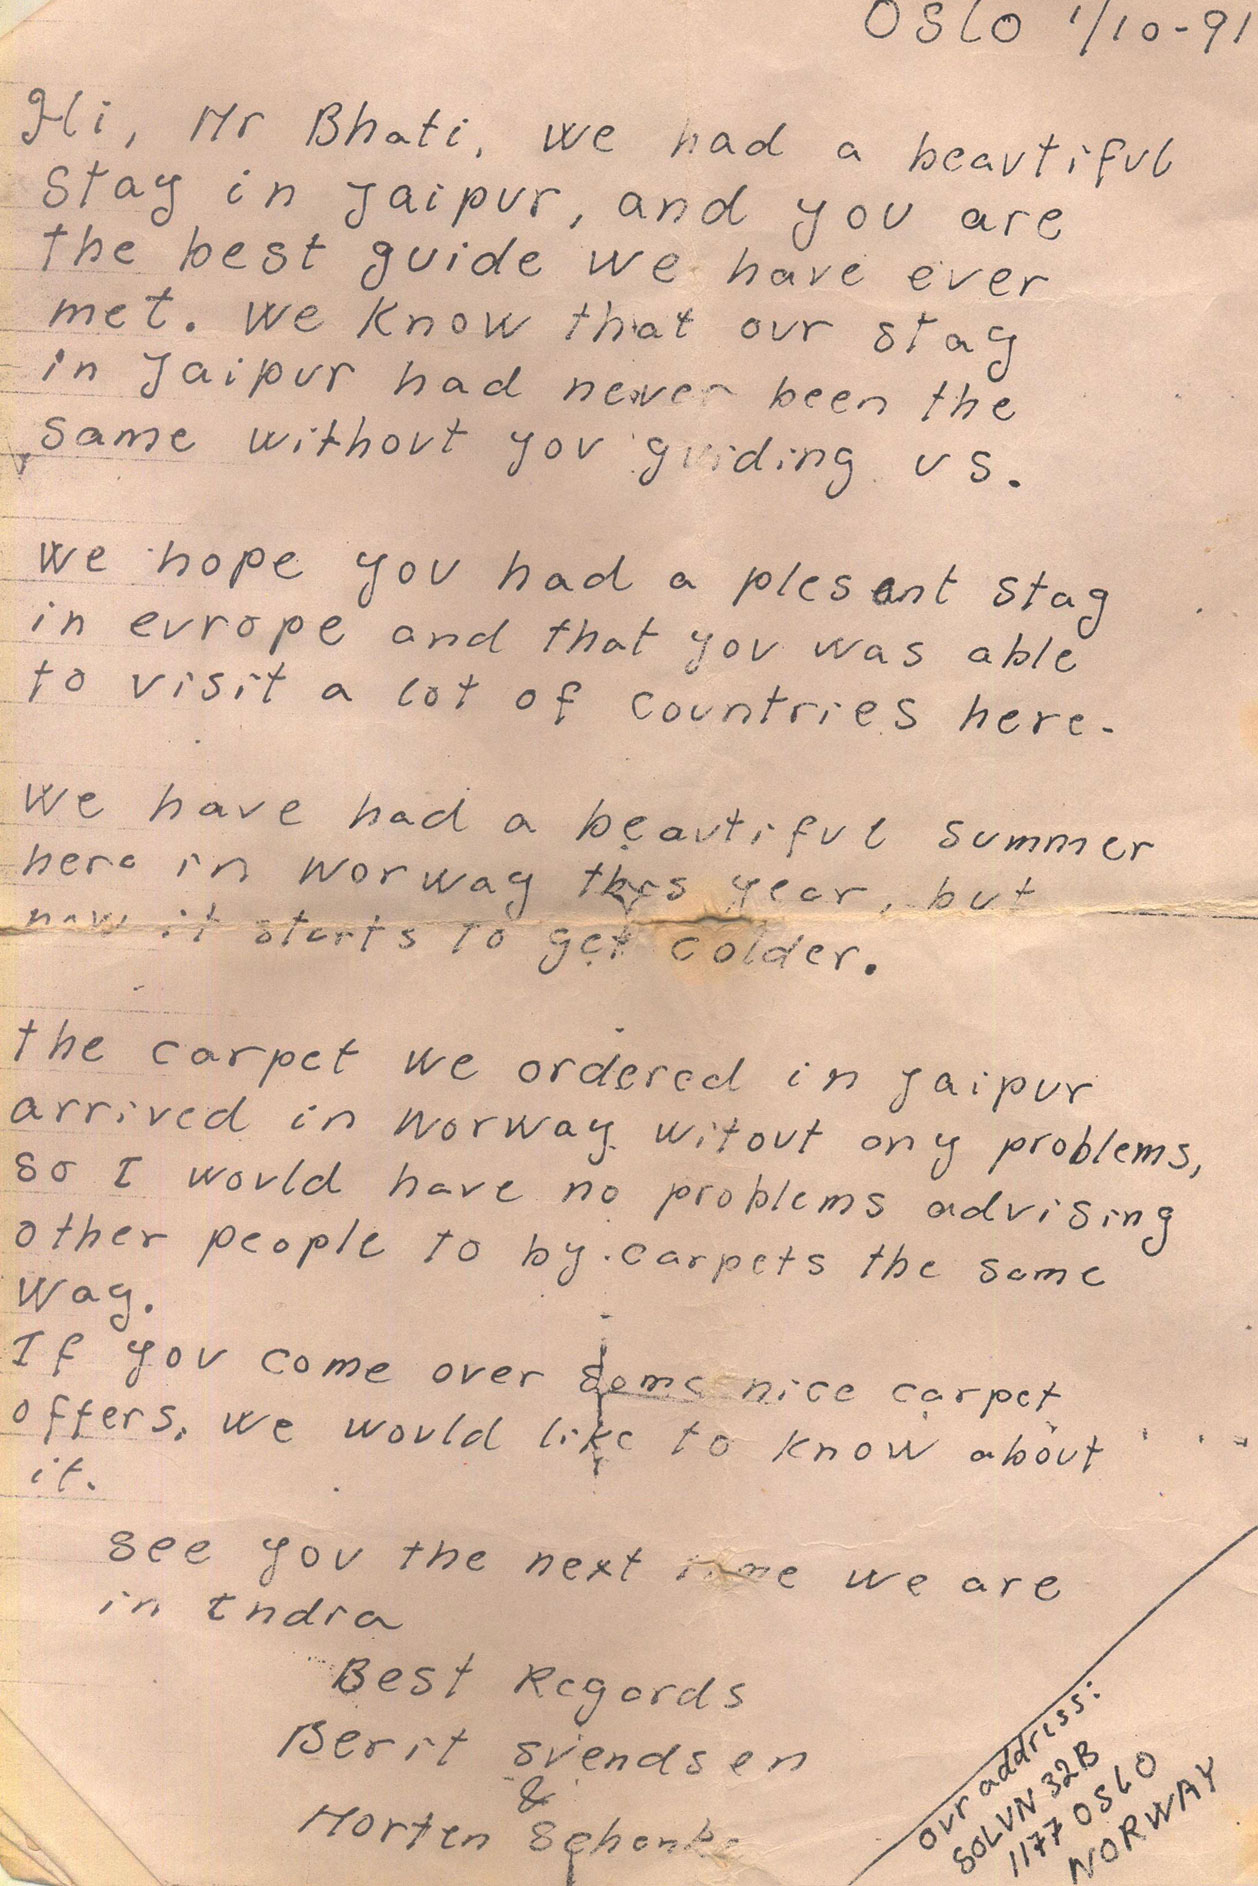 OSLO 1/10-91
Hi, Mr Bhati, we had a beautiful
stay in Jaipur, and you are
the best guide we have ever
met. We know that our stay
in Jaipur had never been the
same without you guiding us.
We hope you had a plesant stay
in europe and that you was able
to visit a lot of countries here.
We have had a beautiful summer
here in Norway this year, but
now it starts to get colder.
the carpet we ordered in Jaipur
arrived in Norway witout any problems,
so I would have no problems advising
other people to by carpets the same
way.
If you come over some nice carpet
offers, we would like to know about
it.
see you the next time we are
in India
Best Regards
Berit Svendsen
&
Morten
our address:
SOLVN 32B
1177 OSLO
NORWAY